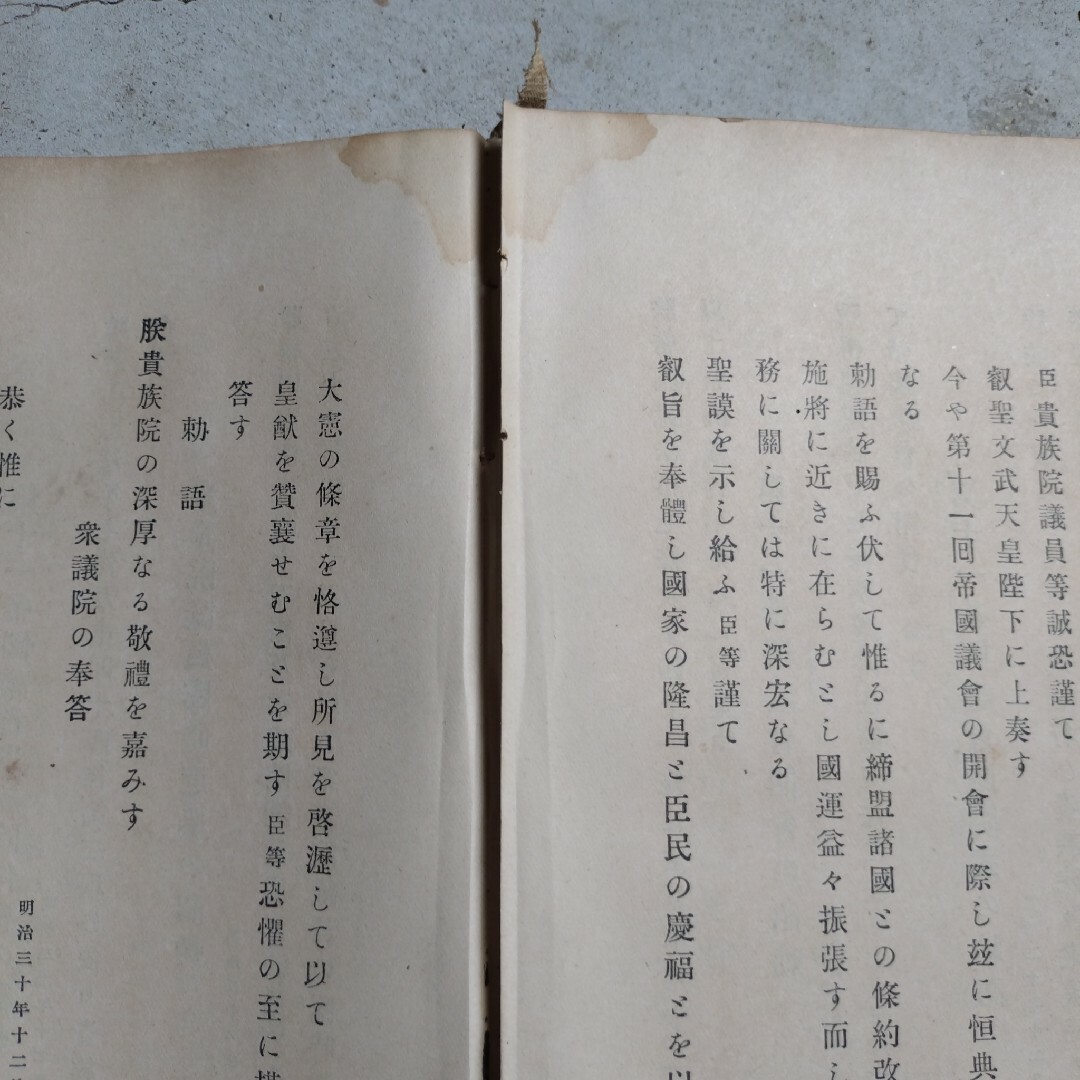 臣貴族院議員等誠恐謹て
叡聖文武天皇陛下に上奏す
今や第十一囘帝國議會の開會に際し玆に恒典
なる
勅語を賜ふ伏して惟るに締盟諸國との條約改
施將に近きに在らむとし國運益々振張す而し
務に關しては特に深宏なる
聖謨を示し給ふ臣等謹て
叡旨を奉體し國家の隆昌と臣民の慶福とを以
大憲の條章を恪遵し所見を啓瀝して以て
皇猷を贊襄せむことを期す臣等恐懼の至に
答す
勅語
朕貴族院の深厚なる敬禮を嘉みす
衆議院の奉答
明治三十年十二
恭く惟に